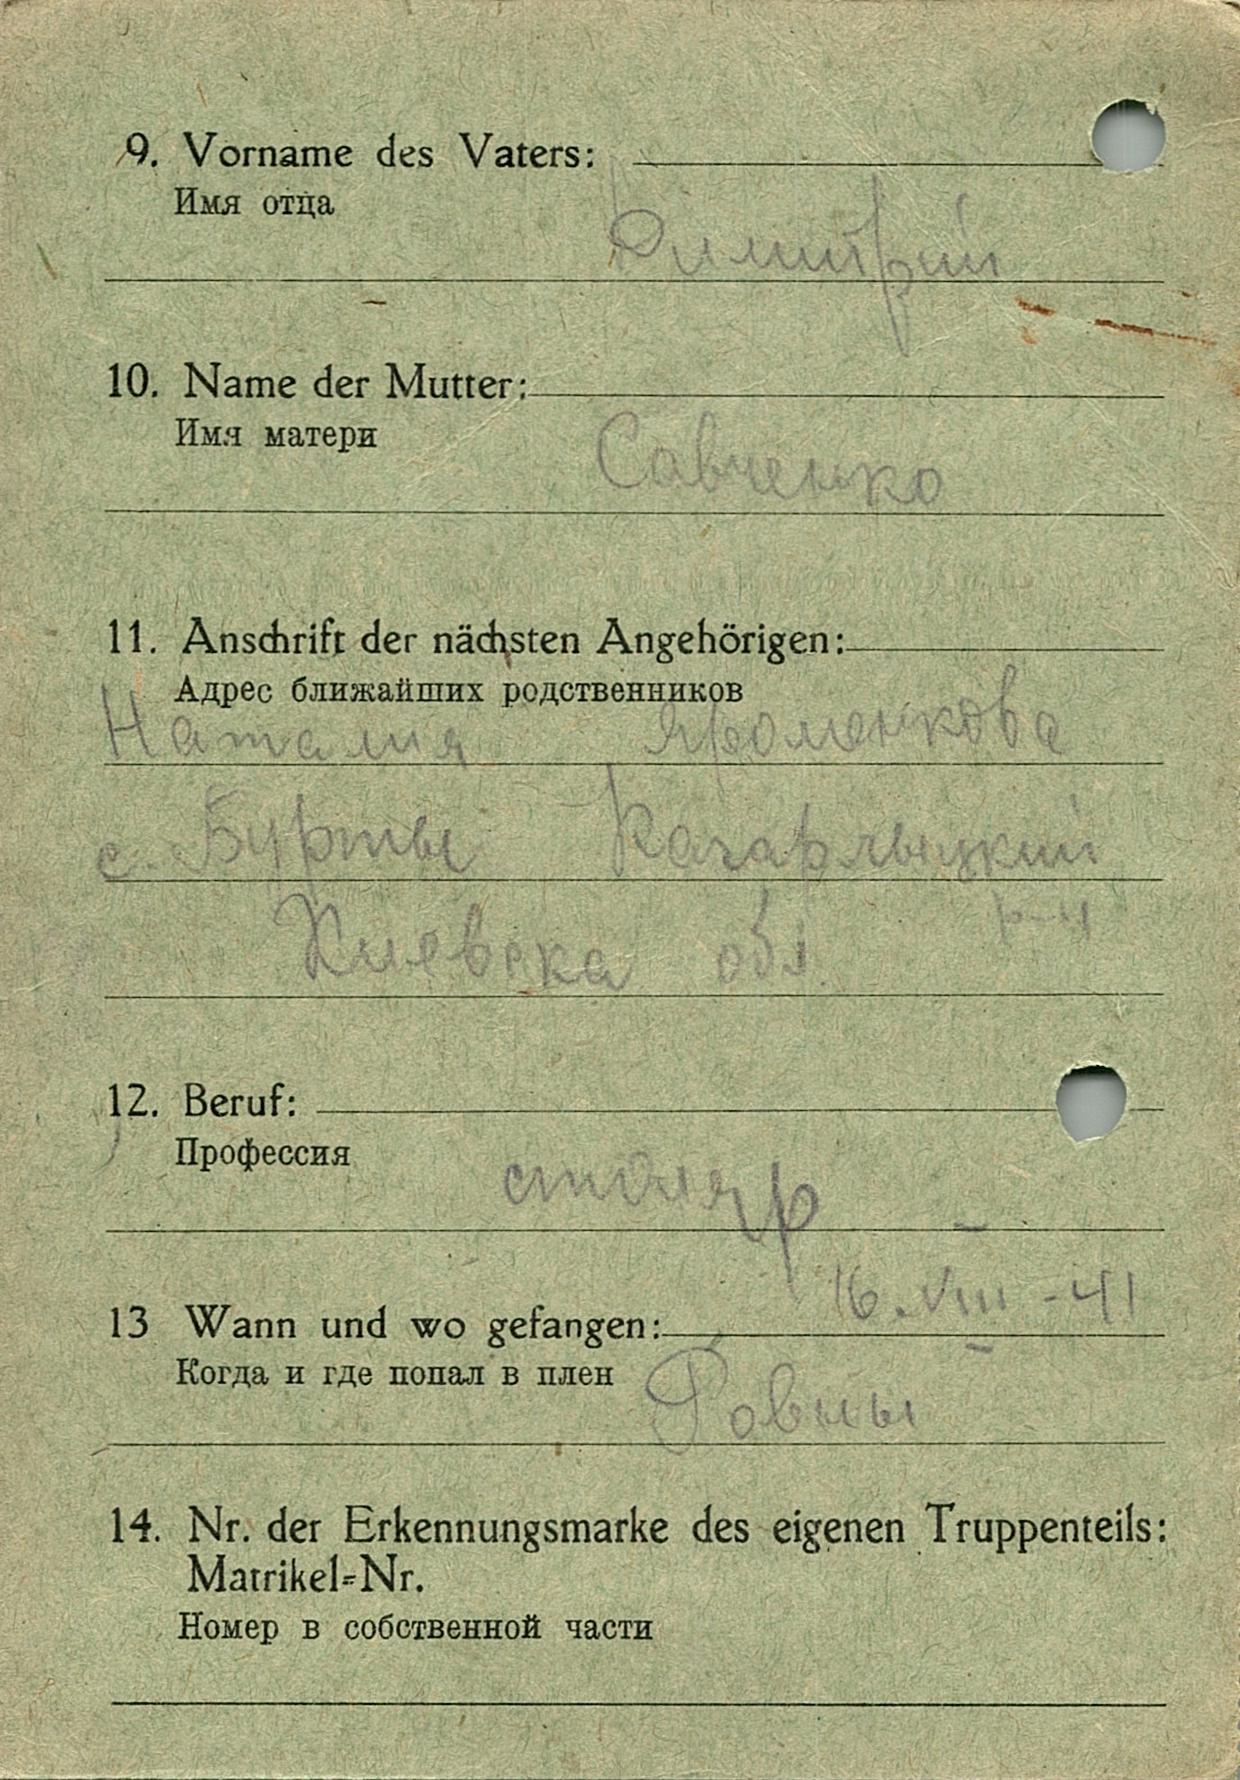 9. Vorname des Vaters:
Имя отца
Димитрий
10. Name der Mutter:
Имя матери
Савченко
11. Anschrift der nächsten Angehörigen:
Адрес ближайших родственников
Наталия Яроменкова
с. Бурты Кагарлыцкий
р-н
Киевска обл.
12. Beruf:
Профессия
столяр
16.VIII-41
13 Wann und wo gefangen:
Когда и где попал в плен
Ровны
14. Nr. der Erkennungsmarke des eigenen Truppenteils:
Matrikel-Nr.
Номер в собственной части